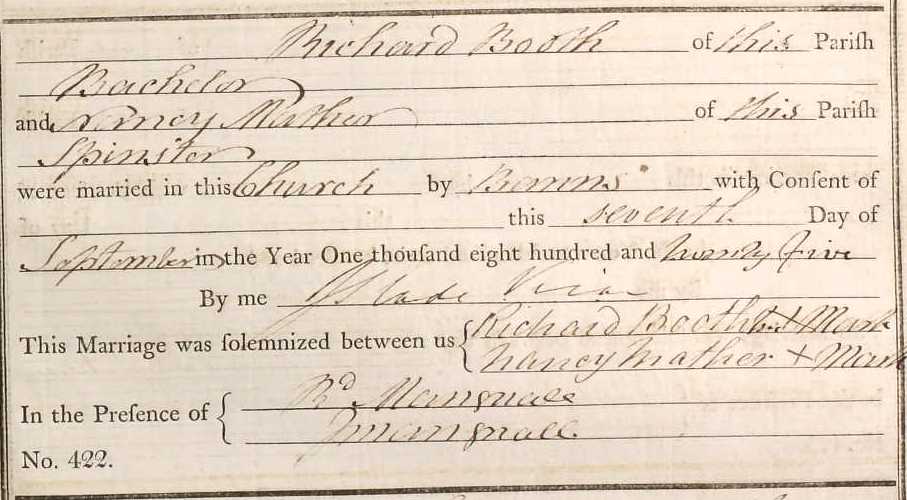 Richard Booth of this Pariſh
Bachelor
and Nancy Mather of this Pariſh
Spinster
were married in this Church by Banns with Conſent of
this seventh Day of
September in the Year One thouſand eight hundred and twenty five
By me J Slade Vicar
This Marriage was ſolemnized between us Richard Booth + Mark
Nancy Mather + Mark
In the Preſence of Rd Mangnall
J Mangnall
No. 422.